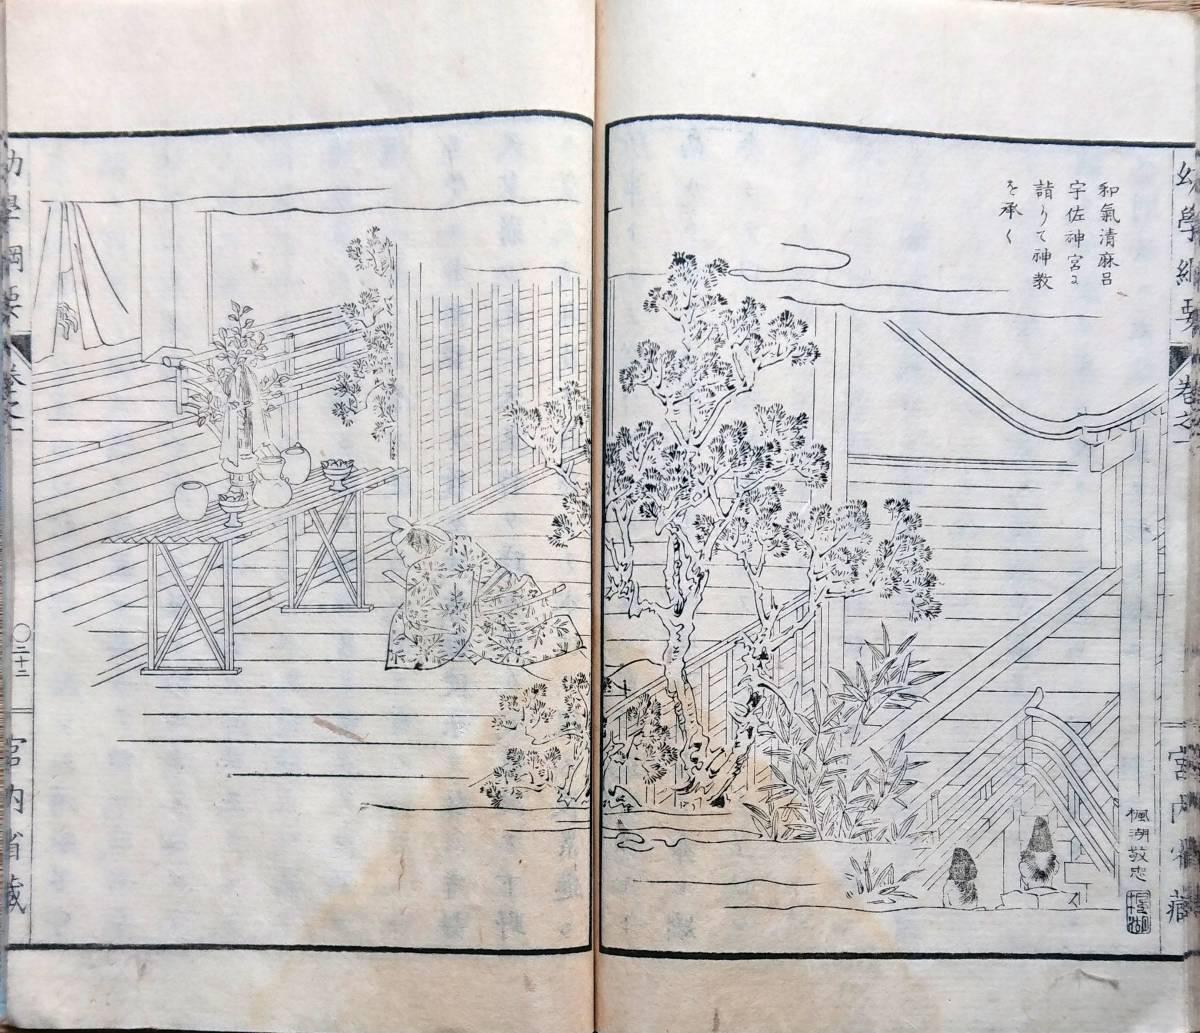 和氣清麻呂
宇佐神宮に
詣りて神教
を承く
楓湖敬忠
幼學綱要
卷之一
宮內省藏
幼學綱要
卷之一
〇二十二
宮內省藏